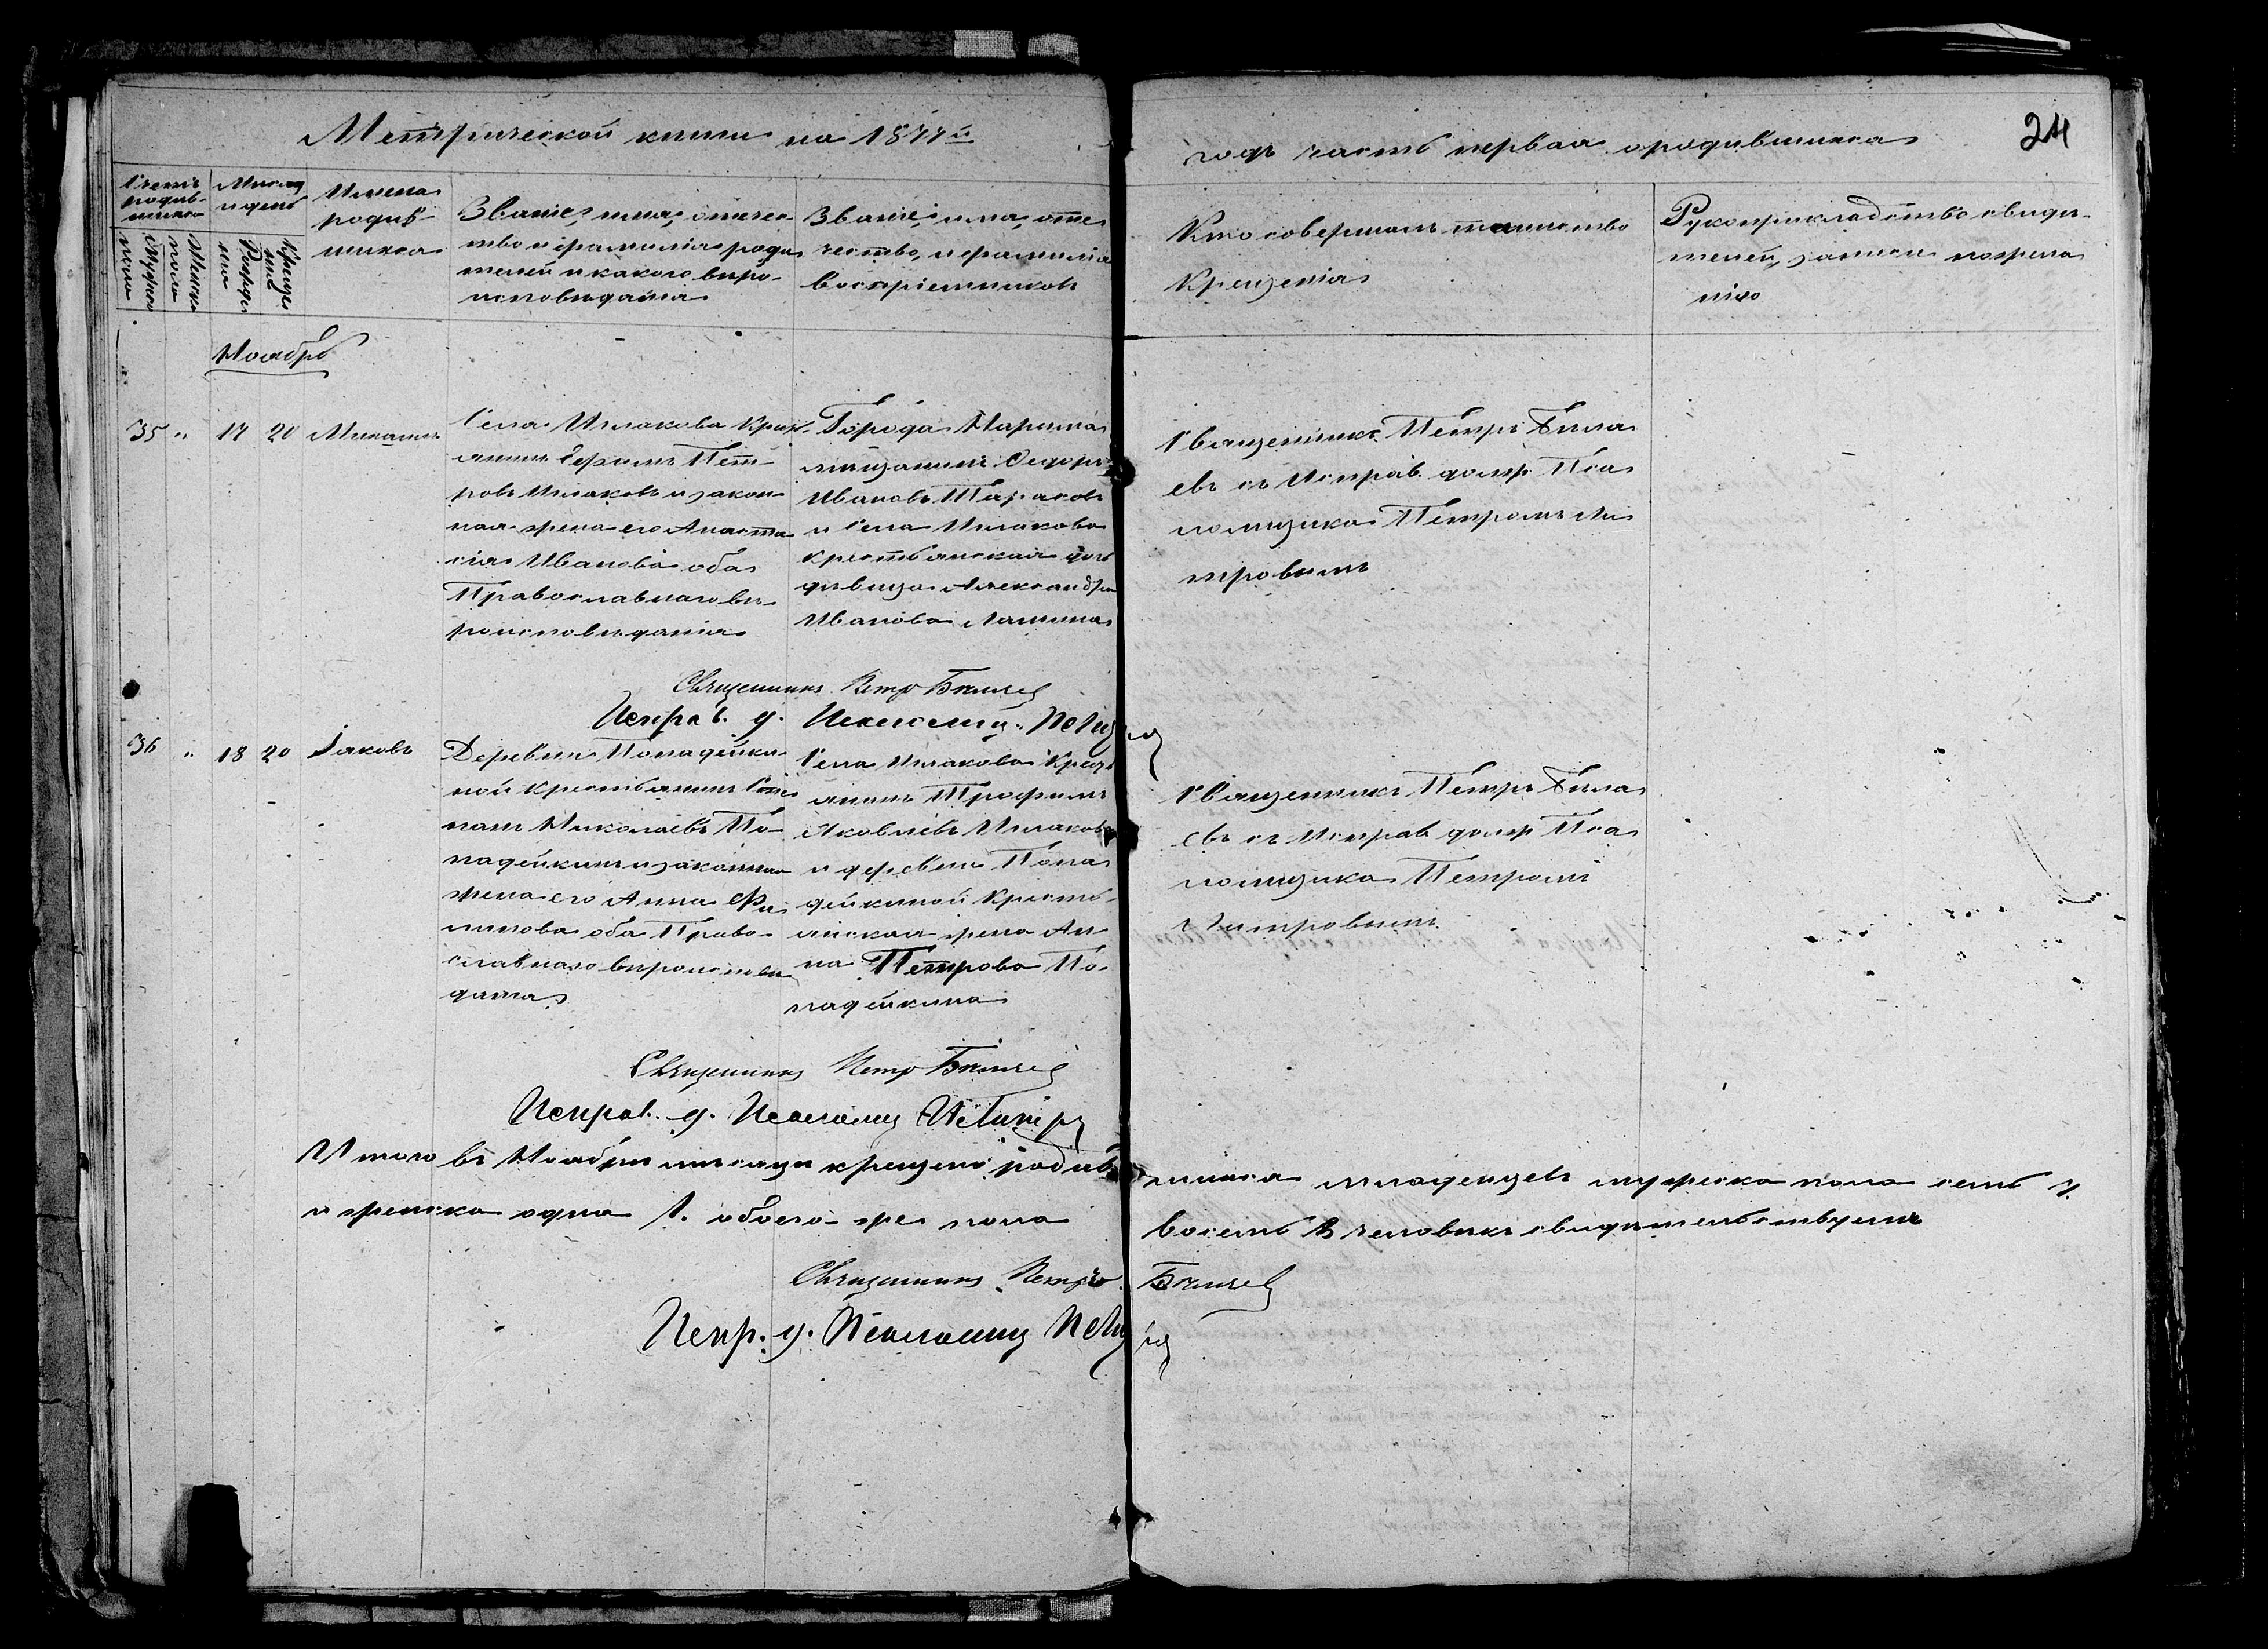 Метрической книги на 1877й
годъ часть первая о родившихся
24
Счетъ
родив-
шихся
Мужеска
пола
Женска
пола
Мѣсяцъ
и день
Рожде-
нія
Креще-
нія
Имена
родив-
шихся
Званіе, имя, отчес-
тво и фамилія роди
телей и какого вѣро-
исповѣданія
Званіе, имя, отче
чество, и фамилія
воспріемниковъ
Кто совершалъ таинство
Крещенія
Рукоприкладство свидѣ-
телей записи по жела
нію
Ноябрь
35 " 17 20 Михаилъ
Села Ишакова Крест
янинъ Ефимъ Пет-
ровъ Ишаковъ и закон-
ная жена его Анаста
сія Иванова оба
Православнаго вѣ-
роисповѣданія
Города Нарыма
мѣщанинъ Ѳедоръ
Ивановъ Тарасовъ
и Села Ишакова
крестьянская дочь
дѣвица Александра
Иванова
Священникъ Петръ Бѣля
евъ съ Исправ. долж. Пса
ломщика Петромъ
Священникъ Петръ Бѣляевъ
Исправ. д. Псаломщ.
36 " 18 20 Іаковъ
Деревни Попадейки
ной Крестьянинъ Сте
панъ Николаевъ По-
падейкинъ и законная
жена его Анна Фи
липова оба Право-
славнаго вѣроисповѣ
данія
Села Ишакова Крест
янинъ Трофимъ
Яковлевъ Ишаковъ
и деревни Попа
дейкиной Кресть-
янская жена Ан-
на Петрова По-
падейкина
Священникъ Петръ Бѣля
евъ съ Исправ долж Пса
ломщика Петромъ
Священникъ Петръ Бѣляевъ
Исправ. д. Псаломщ
Итого въ Ноябрѣ мѣсяцѣ крещено родив
шихся младенцевъ мужеска пола семь 7
и женска одна 1. обоего же пола
восемь 8 человѣкъ свидѣтельствуемъ
Священникъ Петръ Бѣляевъ
Испр. д. Псаломщ